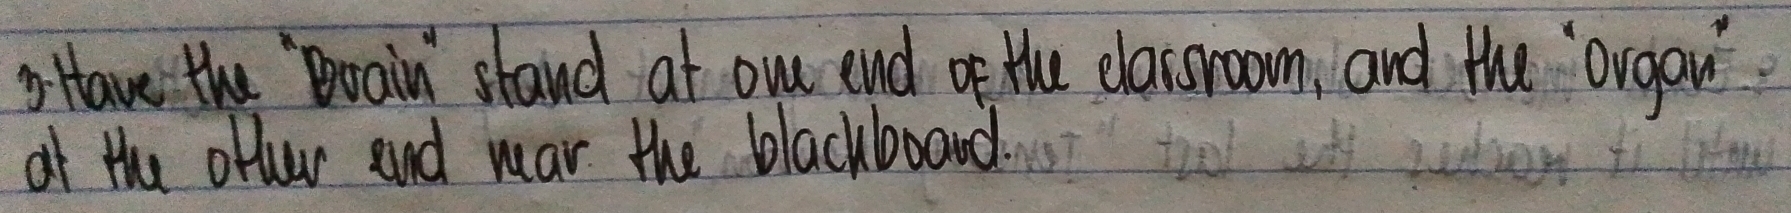 3. Have the "Brain" stand at one end of the classroom, and the "organ"
at the other end near the blackboard.